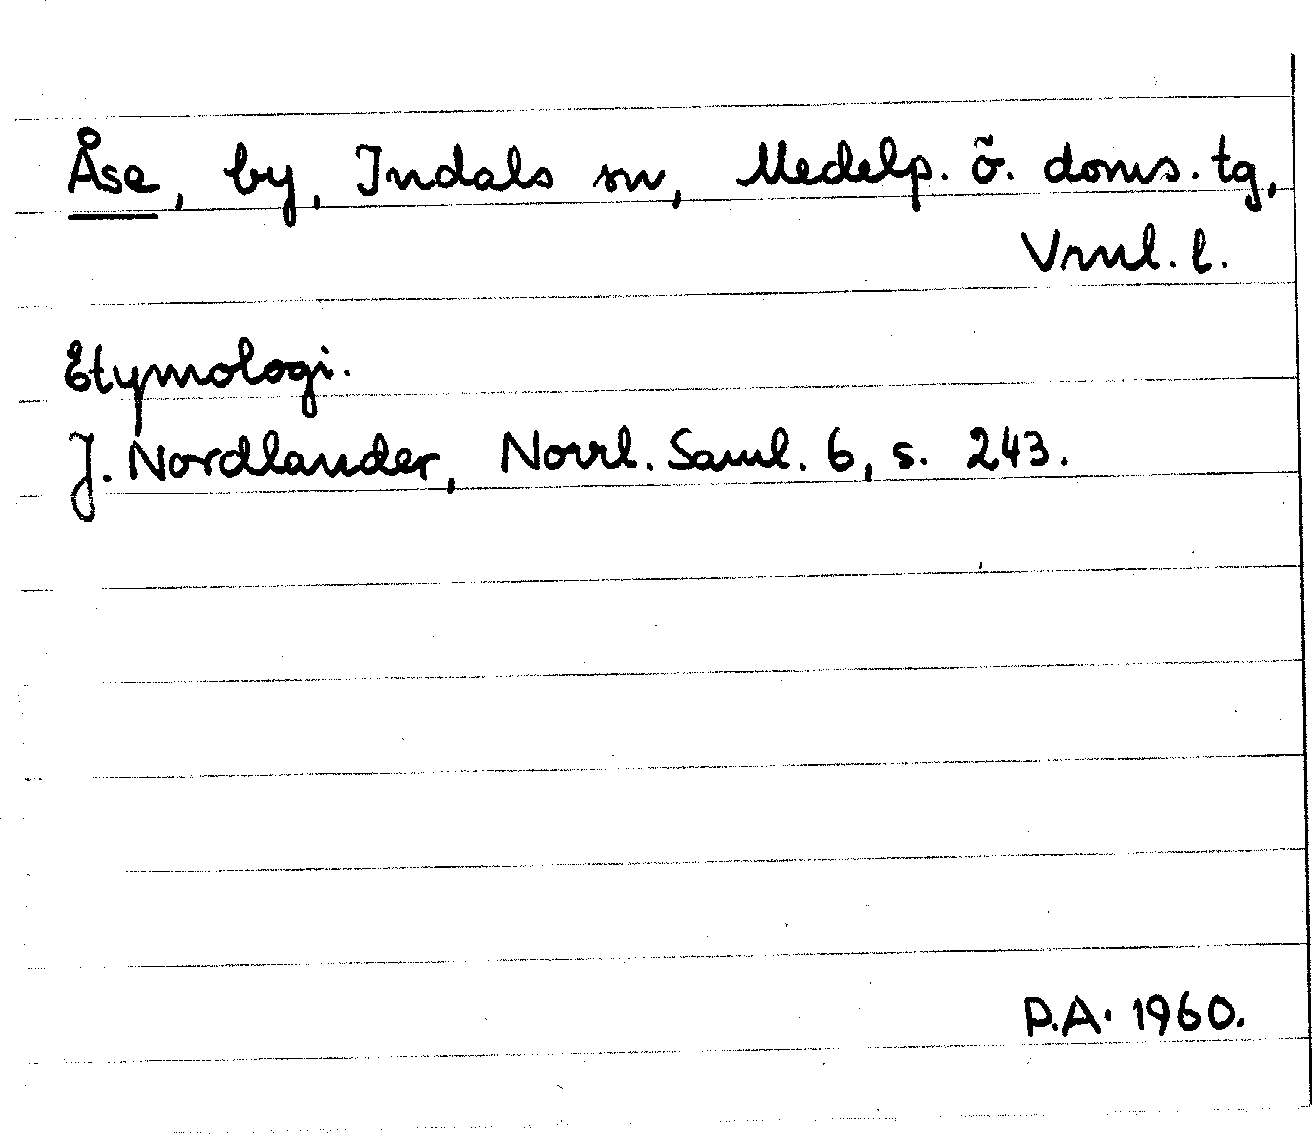 Åse, by, Indals sn, Medelp. ö. doms. tg,
Vrnl. l.
Etymologi.
J. Nordlander, Norrl. Saml. 6, s. 243.
P.A. 1960.